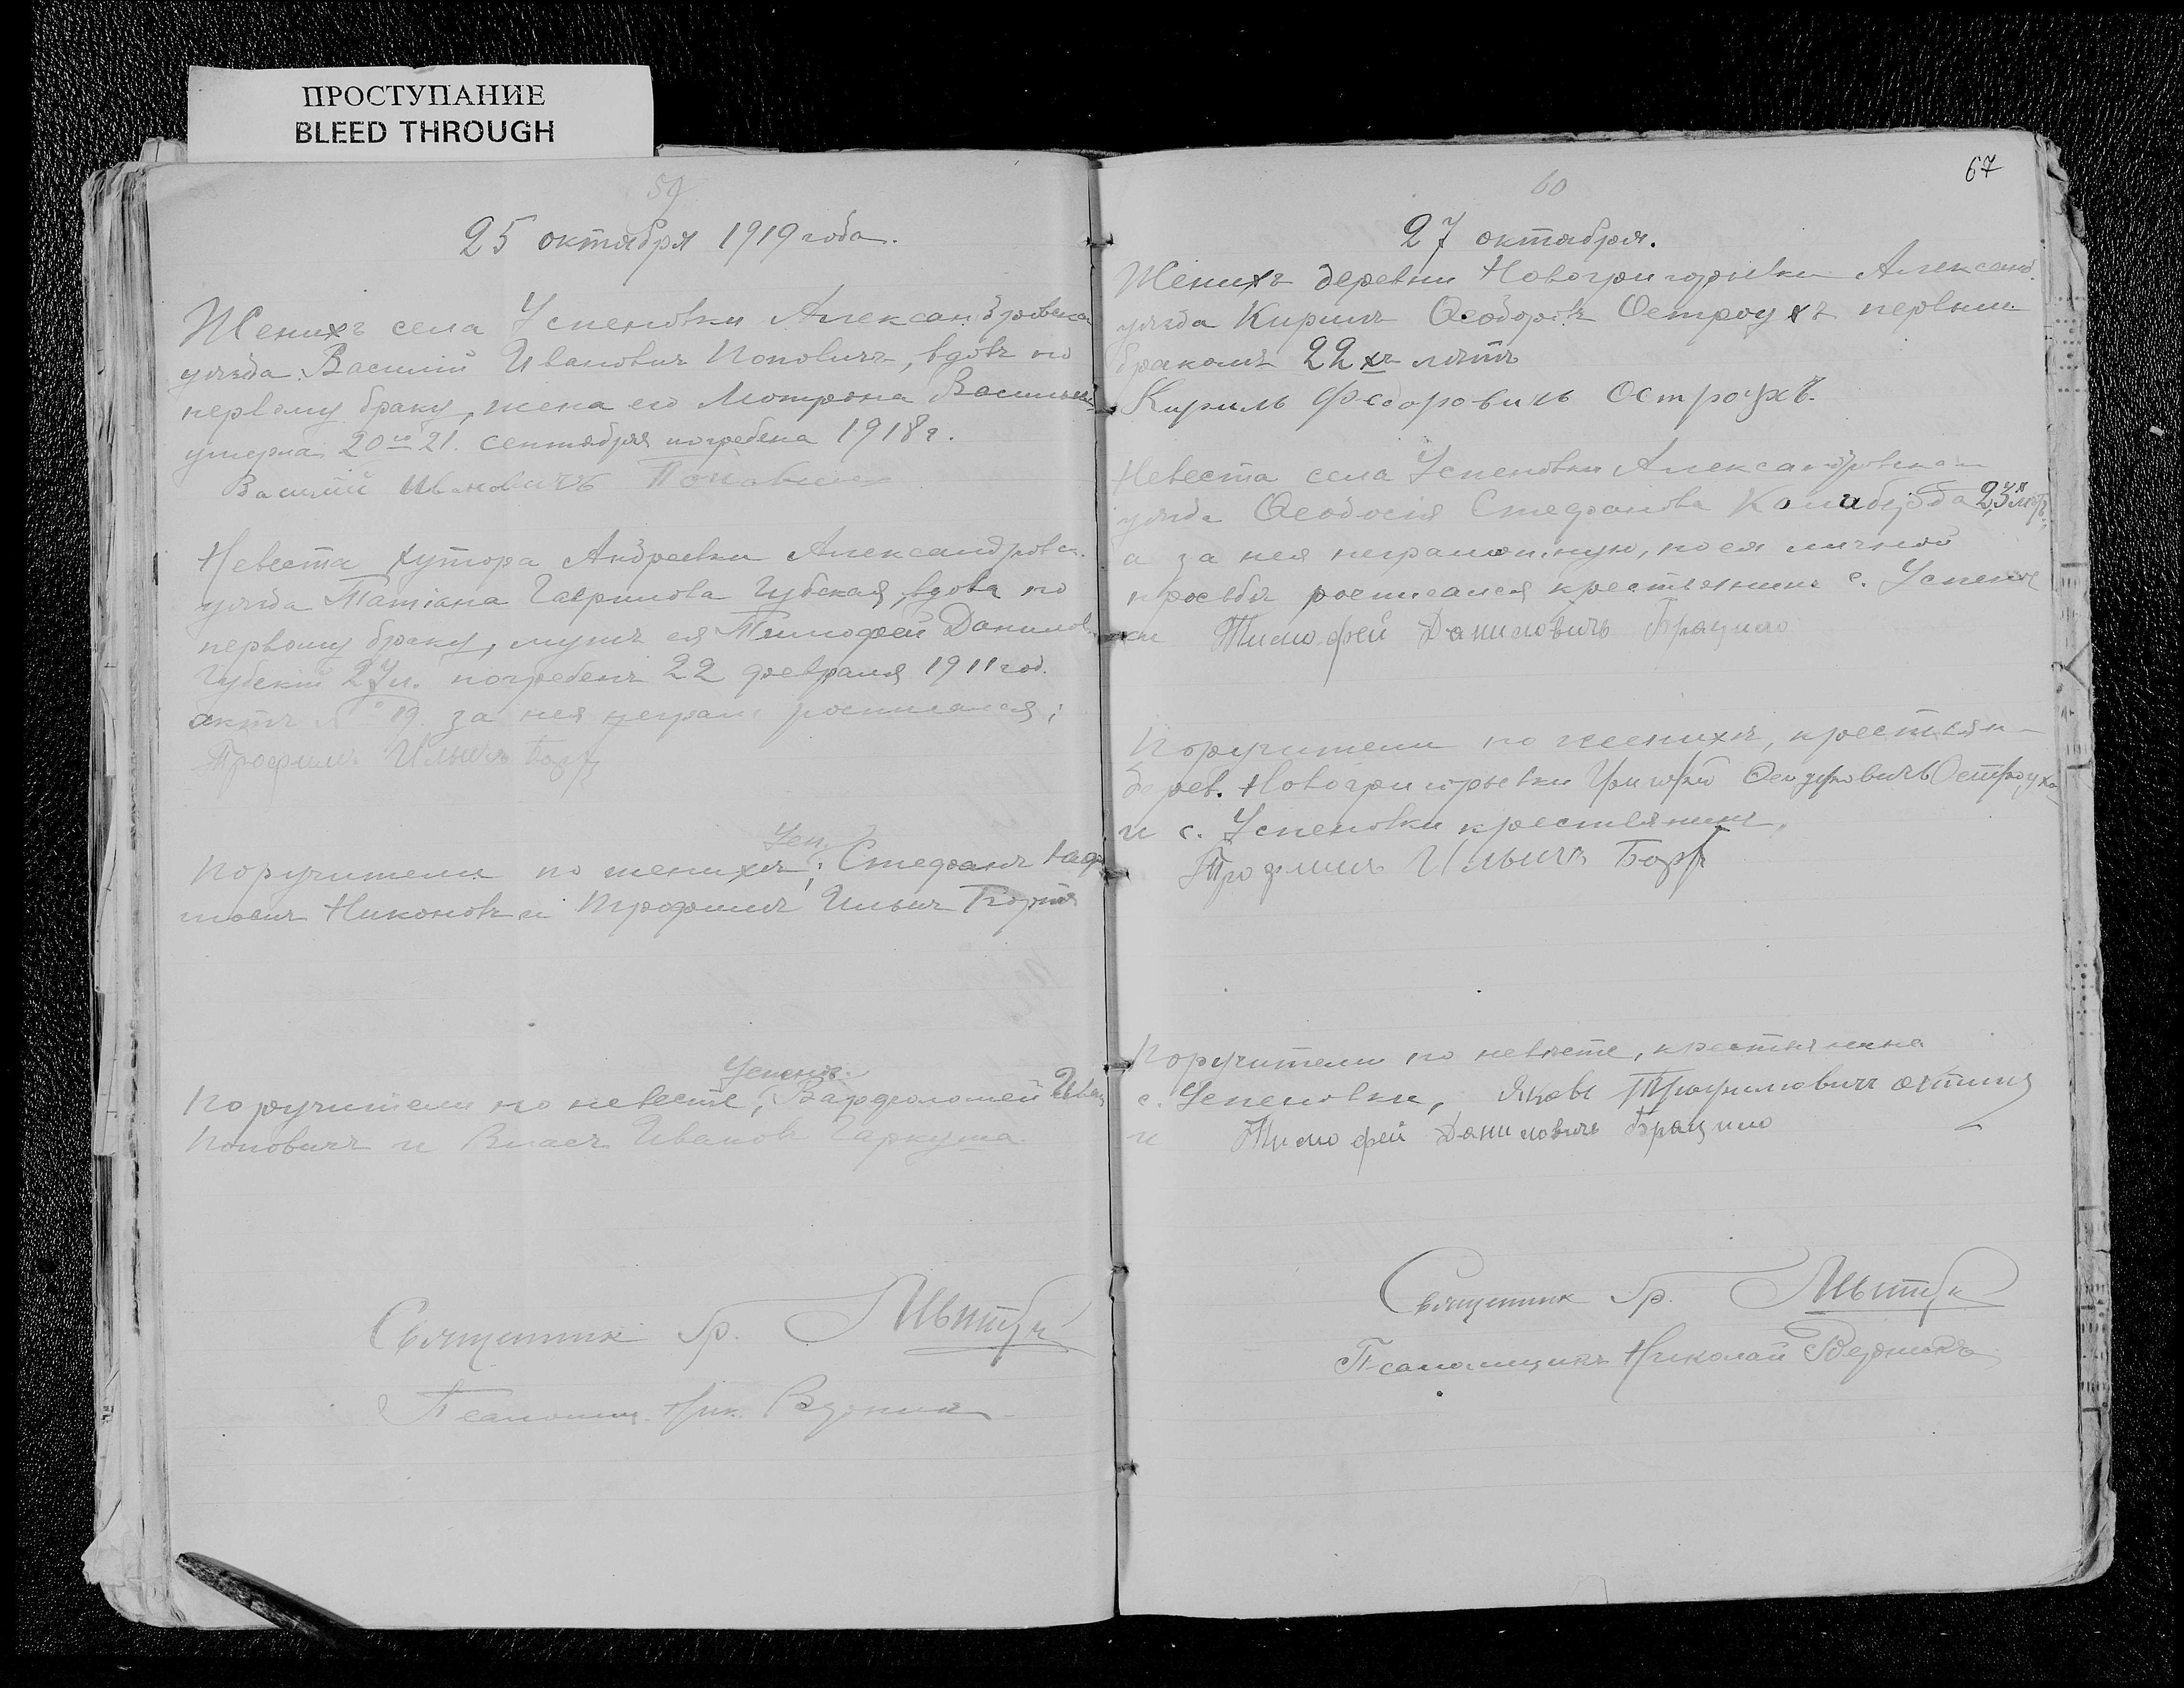 ПРОСТУПАНИЕ
BLEED THROUGH
59
25 октября 1919 года.
Женихъ села Успеновки Александровска
уѣзда Василій Ивановичъ Поповичъ, вдовъ по
первому браку, жена его Мотрона Васильев
умерла 20го 21. сентября погребена 1918 г.
Василий Ивановичъ Поповичъ
Невеста хутора Андреевки Александровск.
уѣзда Татіана Гаврилова Губская, вдова по
первому браку, мужъ ея Тимофей Данилов.
Губскій 27 л. погребенъ 22 февраля 1911 год.
актъ № 19. за нея неграм. росписался:
Трофимъ Ильичъ
Успен.
Поручители по женихѣ: Стефанъ
Никоновъ и Трофимъ Ильичъ
Успенов.
Поручители по невестѣ, Варфоломей Иван
Поповичъ и Власъ Ивановъ Гаркуша.
Священникъ Гр.
Псаломщ. Ник.
60
67
27 октября.
Женихъ деревни Новогригорьевки Александ.
уѣзда Кирилъ Ѳеодоровъ Остроухъ первымъ
бракомъ 22хъ лѣтъ
Кирилъ Федоровичъ Остроухъ.
Невеста села Успеновки Александровскаго
уѣзда Ѳеодосія Стефанова 23х лѣтъ,
а за нея неграмотную, по ея личной
просьбѣ росписался крестьянинъ с. Успенов
ки Тимофей Даниловичъ
Поручители по женихѣ, крестьян-
дерев. Новогригорьевки Остроухъ
и с. Успеновки крестьянинъ,
Трофимъ Ильичъ
Поручители по невѣсте, крестьянина
с. Успеновки, Яковъ Трофимовичъ
и Тимофей Даниловичъ
Священникъ Гр.
Псаломщикъ Николай